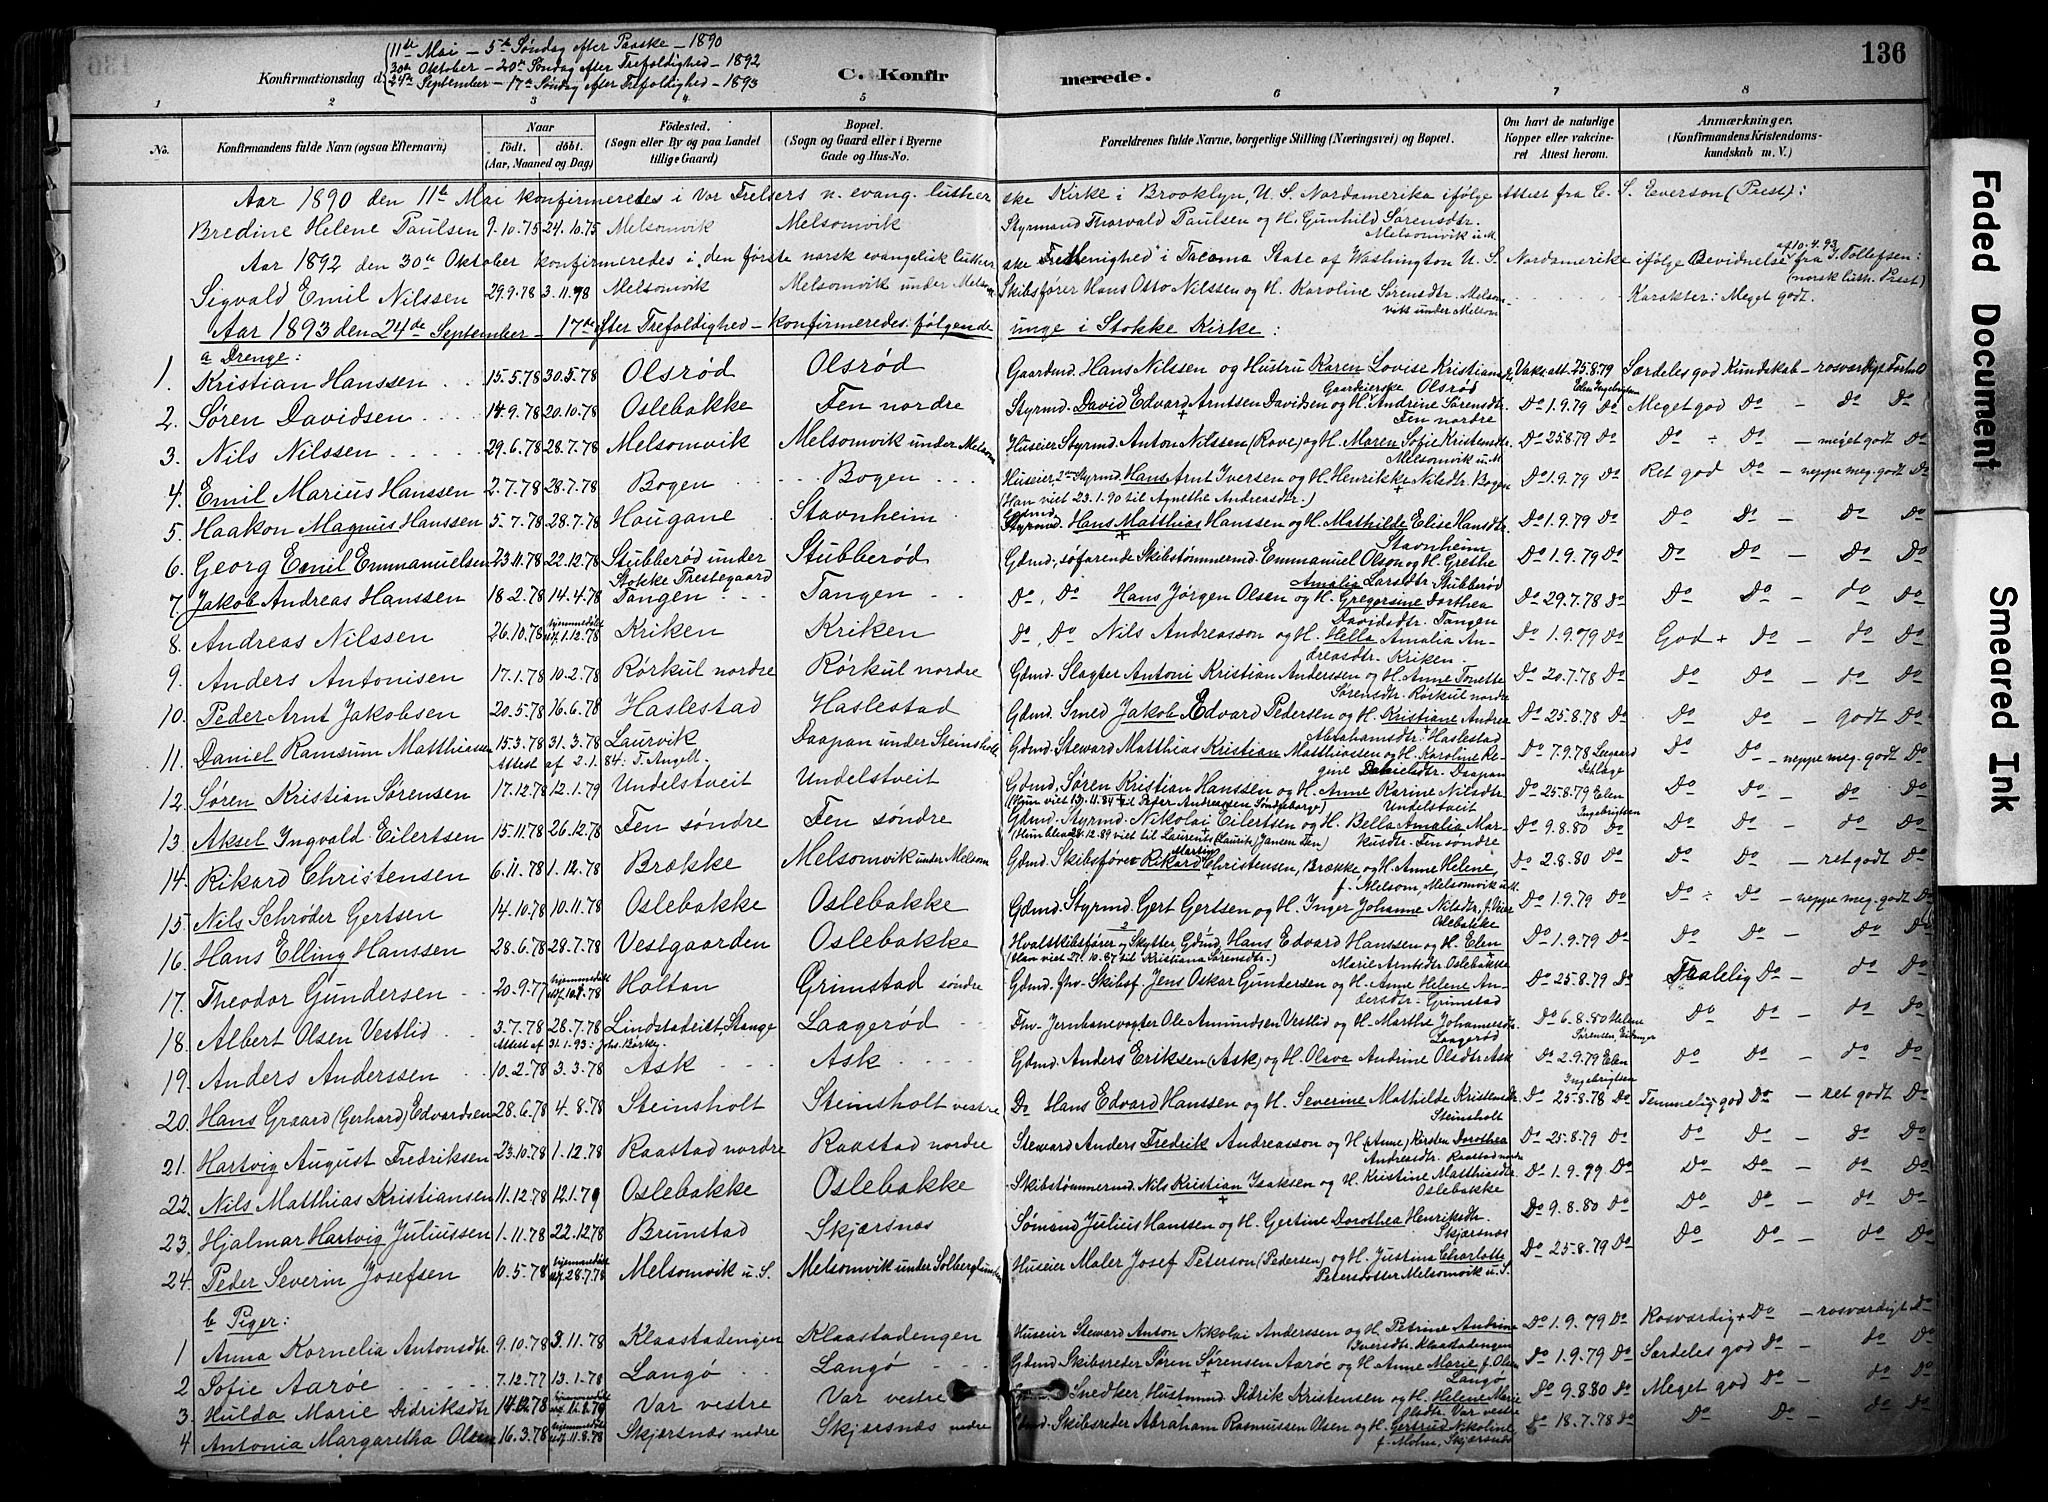 136
11te Mai – 5te Søndag efter Paaske – 1890
30te Oktober – 20de Søndag efter Trefoldighed – 1892
Konfirmationsdag d. 24de September – 17de Søndag efter Trefoldighed – 1893
C. Konfirmerede.
1 2 3 4 5 6 7 8
No.
Konfirmandens fulde Navn (ogsaa Efternavn)
Naar
født. døbt.
(Aar, Maaned og Dag)
Fødested.
(Sogn eller By og paa Landet
tillige Gaard)
Bopæl.
(Sogn og Gaard eller i Byerne
Gade og Hus-No.
Forældrenes fulde Navne, borgerlige Stilling (Næringsvei) og Bopæl.
Om havt de naturlige
Kopper eller vakcine-
ret Attest herom.
Anmærkninger.
(Konfirmandens Kristendoms-
kundskab m. V.)
Aar 1890 den 11te Mai konfirmeredes i Vor Frelsers n. evang. lutherske Kirke i Brooklyn, U. S. Nordamerika ifølge Attest fra E. S. Everson (Prest):
Bredine Helene Paulsen 9.10.75 24.10.75 Melsomvik Melsomvik Styrmand Thorvald Paulsen og H. Gunhild Sørensdtr.
Melsomvik u. M.
Aar 1892 den 30te Oktober konfirmeredes i den første norsk evangelisk lutherske Frimenighed i Tacoma State of Washington U. S. Nordamerike ifølge Bevidnelse af 10.4.93 fra T. Tollefsen:
(norsk luth. Prest)
Sigvald Emil Nilssen 29.9.78 3.11.78 Melsomvik Melsomvik under Melsom Skibsfører Hans Otto Nilssen og H. Karoline Sørensdtr. Melsom-
vik under Melsom Karakter: Meget godt.
Aar 1893 den 24de September – 17de efter Trefoldighed – konfirmeredes følgende unge i Stokke Kirke:
a Drenge:
1. Kristian Hanssen 15.5.78 30.5.78 Olsrød Olsrød Gaardmd. Hans Nilssen og Hustru Karen Lovise Kristians Olsrød Vaks. att. 25.8.79 Særdeles god Kundskab – rosværdigt Forhold
2. Søren Davidsen 14.9.78 20.10.78 Oslebakke Fen nordre Styrmd. David Edvard Arntsen Davidsen og H. Andrine Sørensdtr.
Fen nordre Do 1.9.79 Do Meget god Do – Do Do
3. Nils Nilssen 29.6.78 28.7.78 Melsomvik Melsomvik under Melsom Huseier Styrmd. Anton Nilssen (Rove) og H. Maren Sofie Kristensdtr.
Melsomvik u. M. Do 25.8.79 Do Do ÷ Do – meget godt Do
4. Emil Marius Hanssen 2.7.78 28.7.78 Bogen Bogen Huseier Styrmd. Hans Arnt Iversen og H. Henrikke Nilsdtr. Bogen
(Han viet 23.1.90 til Agnethe Andreasdtr.) Do 1.9.79 Do Ret god Do – neppe meg. godt Do
5. Haakon Magnus Hanssen 5.7.78 28.7.78 Hougane Stavnheim Styrmd. Hans Matthias Hanssen og H. Mathilde Elise Hansdtr.
Stavnheim Do 1.9.79 Do Do Do – Do Do
6. Georg Emil Emmanuelsen 23.11.78 22.12.78 Stubberød under
Stokke Prestegaard Stubberød Gdmd. søfarende Skibstømmermd. Emmanuel Olson og H. Grethe
Amalia Larsdtr. Stubberød Do 1.9.79 Do Do Do – Do Do
7. Jakob Andreas Hanssen 18.2.78 14.4.78 Tangen Tangen Do, Do Hans Jørgen Olsen og H. Gregersine Dorthea
Davidsdtr. Tangen Do 29.7.78 Do Do Do – do Do
8. Andreas Nilssen 26.10.78 hjemmedøbt 1.12.78 Kriken Kriken Do, Do Nils Andreasson og H. Hella Amalia An-
dreasdtr. Kriken. Do 1.9.79 Do God + Do – do Do
9. Anders Antonisen 17.1.78 10.2.78 Rørkul nordre Rørkul nordre Gdmd. Slagter Antoni Kristian Anderssen og H. Anne Tonette
Sørensdtr. Rørkul nordre Do 20.7.78 Do Do Do – do Do
10. Peder Arnt Jakobsen 20.5.78 16.6.78 Haslestad Haslestad Gdmd. Smed Jakob Edvard Pedersen og H. Kristiane Andrea
Abrahamsdtr. Haslestad Do 25.8.78 Do Do Do – godt Do
11. Daniel Ramsum Matthiassen 15.3.78 31.3.78 Laurvik Daapan under Steinsholt Gdmd. Steward Matthias Kristian Matthiassen og H. Karoline Re-
gine Danielsdtr. Daapan Do 7.9.78 Do Do – neppe meg. godt Do
Attest af 2.1.84: T. Angell.
12. Søren Kristian Sørensen 17.12.78 12.1.79 Undelstveit Undelstveit Gdmd. Søren Kristian Hanssen og H. Anne Karine Nilsdtr.
Undelstveit Do 25.8.79 Elen
Ingebrigtsen Do Do – do Do
13. Aksel Ingvald Eilertsen 15.11.78 26.12.78 Fen søndre Fen søndre Gdmd. Styrmd. Nikolai Eilertsen og H. Bella Amalia Mar-
kusdtr. Fen søndre Do 9.8.80 Do Do Do – do Do
14. Rikard Christensen 6.11.78 1.12.78 Brække Melsomvik under Melsom Gdmd. Skibsfører Rikard Martin Christensen, Brække og H. Anne Helene,
f. Melsom, Melsomvik u. M. Do 2.8.80 Do Do Do – ret godt Do
15. Nils Schrøder Gertsen 14.10.78 10.11.78 Oslebakke Oslebakke Gdmd. Styrmd. Gert Gertsen og H. Inger Johanne Nilsdtr.
Oslebakke Do 1.9.79 Do Do ÷ Do – neppe meg. godt Do
16. Hans Elling Hanssen 28.6.78 28.7.78 Vestgaarden Oslebakke Hvalskibsfører og Skytter Gdmd. Hans Edvard Hanssen og H. Elen
(Han viet 27.10.87 til Kristiana Sørensdtr.) Marie Arntsdtr. Oslebakke Do 1.9.79 Do Do Do – do Do
17. Theodor Gundersen 20.9.77 hjemmedøbt Holtan Grimstad søndre Gdmd. fhv. Skibsf. Jens Oskar Gundersen og H. Anne Helene An-
dersdtr. Grimstad Do 25.8.79 Do Taalelig Do – do Do
18. Albert Olsen Vestlid 3.7.78 28.7.78 Lindstadeict Stange Laagerød Fhv. Jernbanevogter Ole Amundsen Vestlid og H. Marthe Johannesdtr.
Laagerød Do 6.8.80 Helene
Sørensen Do Do – do Do
Attest af 31.1.93: Johs. Birke.
19. Anders Anderssen 10.2.78 3.3.78 Ask Ask Gdmd. Anders Eriksen (Ask) og H. Olava Andrine Olsdtr. Ask Do 2.9.79 Elen
Ingebrigtsen Do Do – do Do
20. Hans Graard (Gerhard) Edvardsen 28.6.78 4.8.78 Steinsholt Steinsholt vestre Do Hans Edvard Hanssen og H. Severine Mathilde Kristensdtr.
Steinsholt Do 25.8.78 Do Temmelig god Do – ret godt Do
21. Hartvig August Fredriksen 23.10.78 1.12.78 Raastad nordre Raastad nordre Steward Anders Fredrik Andreasson og H. (Anne) Kirsten Dorothea
Andreasdtr. Raastad nordre Do 25.8.79 Do Do Do – do Do
22. Nils Matthias Kristiansen 11.12.78 12.1.79 Oslebakke Oslebakke Skibstømmermd. Nils Kristian Isaksen og H. Kristine Matthisdtr.
Oslebakke Do 1.9.99 Do Do Do – do Do
23. Hjalmar Hartvig Juliussen 1.11.78 22.12.78 Brunstad Skjærsnæs Sømand Julius Hanssen og H. Gertine Dorothea Henriksdtr.
Skjærsnæs Do 9.8.80 Do Do Do – do Do
24. Peder Severin Josefsen 10.5.78 hjemmedøbt 28.7.78 Melsomvik u. S. Melsomvik under Solberg Huseier Maler Josef Peterson (Pedersen) og H. Justina Charlotte
Petersdotter Melsomvik u. S. Do 25.8.79 Do Do Do – do Do
b Piger:
1 Anna Kornelia Antonsdtr. 9.10.78 3.11.78 Klaastadengen Klaastadengen Huseier Steward Anton Nikolai Anderssen og H. Petrine Andrine
Iversdtr. Klaastadengen Do 1.9.79 Do Rosværdig + Do – rosværdigt Do
2 Sofie Aarøe 7.12.77 13.1.78 Langø Langø Gdmd. Skibsreder Søren Sørensen Aarøe og H. Anne Marie f. Olsen
Langø Do 1.9.79 Do Særdeles god Do – do Do
3 Hulda Marie Didriksdtr. hjemmedøbt Var vestre Var vestre Snedker Husmd. Didrik Kristensen og H. Helene Marie
Olsdtr. Var vestre Do 9.8.80 Do Meget god Do – do Do
4 Antonia Margaretha Olsen 16.3.78 hjemmedøbt 11.8.78 Skjærsnæs nedre Skjærsnæs nedre Gdmd. Skibsreder Abraham Rasmussen Olsen og H. Gertrud Nikoline
f. Mohn, Skjærsnæs Do 18.7.78 Do Do Do – do Do
Faded Document
Smeared Ink